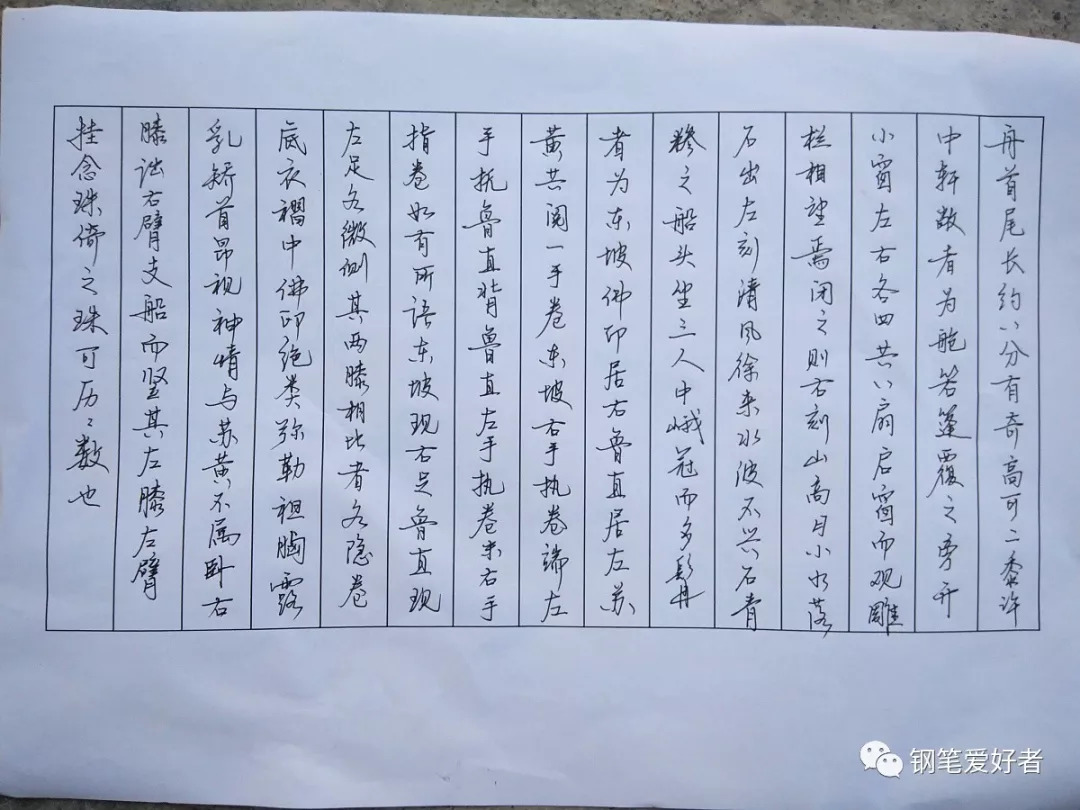 舟首尾长约八分有奇高可二黍许
中轩敞者为舱箬篷覆之旁开
小窗左右各四共八扇启窗而观雕
栏相望焉闭之则右刻山高月小水落
石出左刻清风徐来水波不兴石青
糁之船头坐三人中峨冠而多髯
者为东坡佛印居右鲁直居左苏
黄共阅一手卷东坡右手执卷端左
手抚鲁直背鲁直左手执卷末右手
指卷如有所语东坡现右足鲁直现
左足各微侧其两膝相比者各隐卷
底衣褶中佛印绝类弥勒袒胸露
乳矫首昂视神情与苏黄不属卧右
膝诎右臂支船而竖其左膝左臂
挂念珠倚之珠可历々数也
钢笔爱好者